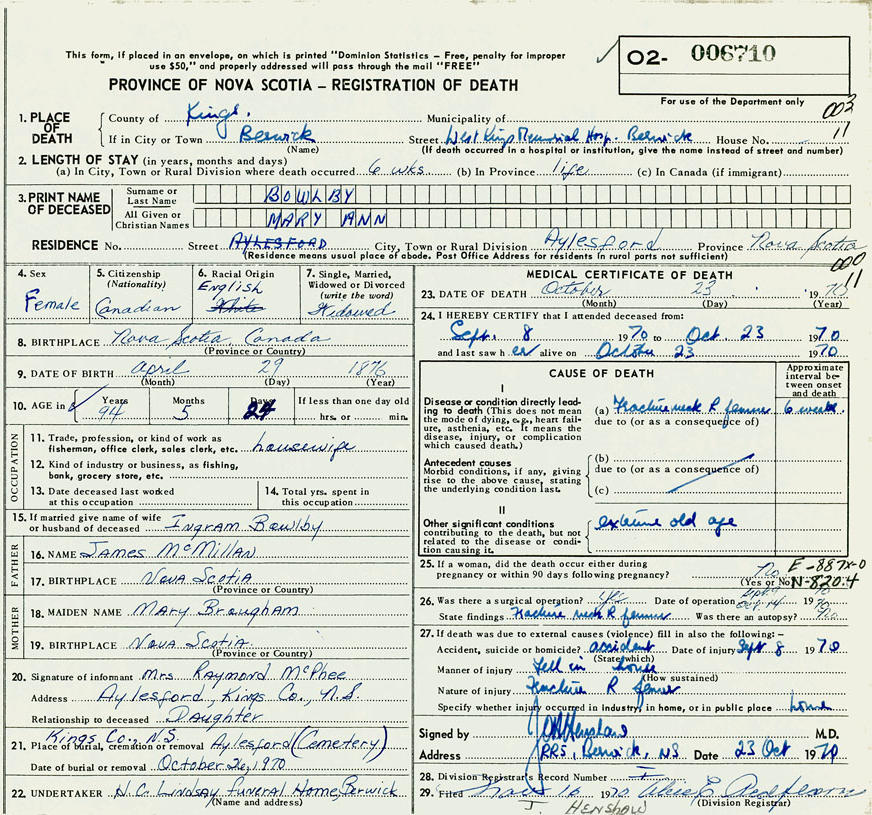 This form, if placed in an envelope, on which is printed "Dominion Statistics — Free, penalty for improper
use $50," and properly addressed will pass through the mail "FREE"
PROVINCE OF NOVA SCOTIA — REGISTRATION OF DEATH
O2- 006710
For use of the Department only
002
11
1. PLACE OF DEATH
County of Kings. Municipality of
If in City or Town Berwick Street West Kings Memorial Hosp. Berwick House No.
(Name) (If death occurred in a hospital or institution, give the name instead of street and number)
2. LENGTH OF STAY (in years, months and days)
(a) In City, Town or Rural Division where death occurred 6 wks (b) In Province life (c) In Canada (if immigrant)
3. PRINT NAME OF DECEASED
Surname or Last Name BOWLBY
All Given or Christian Names MARY ANN
RESIDENCE No. Street AYLESFORD City, Town or Rural Division Aylesford Province Nova Scotia
(Residence means usual place of abode. Post Office Address for residents in rural parts not sufficient)
000
11
4. Sex Female
5. Citizenship (Nationality) Canadian
6. Racial Origin English White
7. Single, Married, Widowed or Divorced (write the word) Widowed
8. BIRTHPLACE Nova Scotia, Canada
(Province or Country)
9. DATE OF BIRTH April 29 1876
(Month) (Day) (Year)
10. AGE in Years 94 Months 5 Days 24 If less than one day old hrs. or min.
OCCUPATION
11. Trade, profession, or kind of work as
fisherman, office clerk, sales clerk, etc. housewife
12. Kind of industry or business, as fishing,
bank, grocery store, etc.
13. Date deceased last worked
at this occupation
14. Total yrs. spent in
this occupation
15. If married give name of wife
or husband of deceased Ingram Bowlby
FATHER
16. NAME James McMillan
17. BIRTHPLACE Nova Scotia
(Province or Country)
MOTHER
18. MAIDEN NAME Mary Brougham
19. BIRTHPLACE Nova Scotia
(Province or Country)
20. Signature of informant Mrs. Raymond McPhee
Address Aylesford, Kings Co., N.S.
Relationship to deceased Daughter
Kings Co., N.S.
21. Place of burial, cremation or removal Aylesford (Cemetery)
Date of burial or removal October 26, 1970
22. UNDERTAKER H.C. Lindsay Funeral Home, Berwick
(Name and address)
MEDICAL CERTIFICATE OF DEATH
23. DATE OF DEATH October 23, 1970
(Month) (Day) (Year)
24. I HEREBY CERTIFY that I attended deceased from:
Sept. 8 1970 to Oct. 23 1970
and last saw h er alive on October 23 1970
CAUSE OF DEATH
Approximate interval between onset and death
I
Disease or condition directly leading to death (This does not mean the mode of dying, e.g., heart failure, asthenia, etc. It means the disease, injury, or complication which caused death.)
(a) Fracture neck R femur 6 weeks.
due to (or as a consequence of)
Antecedent causes
Morbid conditions, if any, giving rise to the above cause, stating the underlying condition last.
(b)
due to (or as a consequence of)
(c)
II
Other significant conditions
contributing to the death, but not related to the disease or condition causing it.
extreme old age
25. If a woman, did the death occur either during
pregnancy or within 90 days following pregnancy? No
(Yes or No)
E-887X-0
N-820.4
26. Was there a surgical operation? yes Date of operation 1970
State findings Fracture neck R femur Was there an autopsy? No
27. If death was due to external causes (violence) fill in also the following: —
Accident, suicide or homicide? accident Date of injury Sept 8 1970
(State which)
Manner of injury Fell in house
(How sustained)
Nature of injury Fracture R femur
Specify whether injury occurred in industry, in home, or in public place home
Signed by M.D.
Address RR5, Berwick, NS Date 23 Oct 1970
28. Division Registrar's Record Number
29. Filed Nov 16 1970
(Division Registrar)
J. HENSHAW